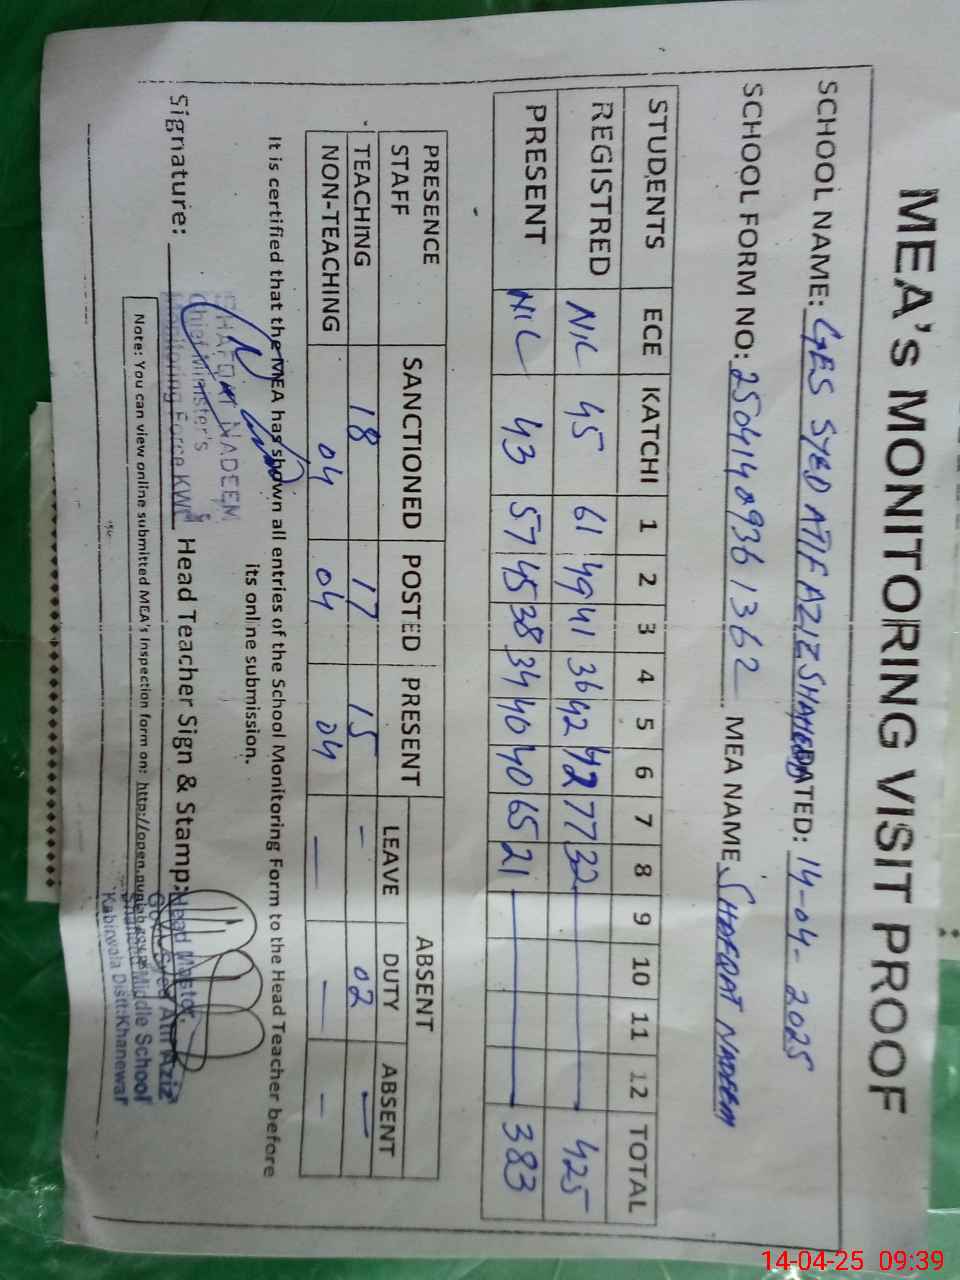 MEA's MONITORING VISIT PROOF
SCHOOL NAME: GES SYED ATIF AZIZ SHAHEED DATED: 14-04-2025
SCHOOL FORM NO: 2504140936 1362 MEA NAME SHAFQAT NADEEM
STUDENTS ECE KATCHI 1 2 3 4 5 6 7 8 9 10 11 12 TOTAL
REGISTRED NIL 45 61 49 41 36 42 42 77 32 425
PRESENT NIL 43 57 45 38 34 40 40 65 21 383
PRESENCE STAFF SANCTIONED POSTED PRESENT ABSENT
LEAVE DUTY ABSENT
TEACHING 18 17 15 - 02 -
NON-TEACHING 04 04 04 - - -
It is certified that the MEA has shown all entries of the School Monitoring Form to the Head Teacher before
its online submission.
SHAFQAT NADEEM
Chief Minister's
Monitoring Force KWL
Signature: Head Teacher Sign & Stamp:
Head Master,
Govt. Syed Atif Aziz
Shaheed Middle School
Kabirwala Distt: Khanewal
Note: You can view online submitted MEA's Inspection form on: http://open.punjab.gov.pk
14-04-25 09:39